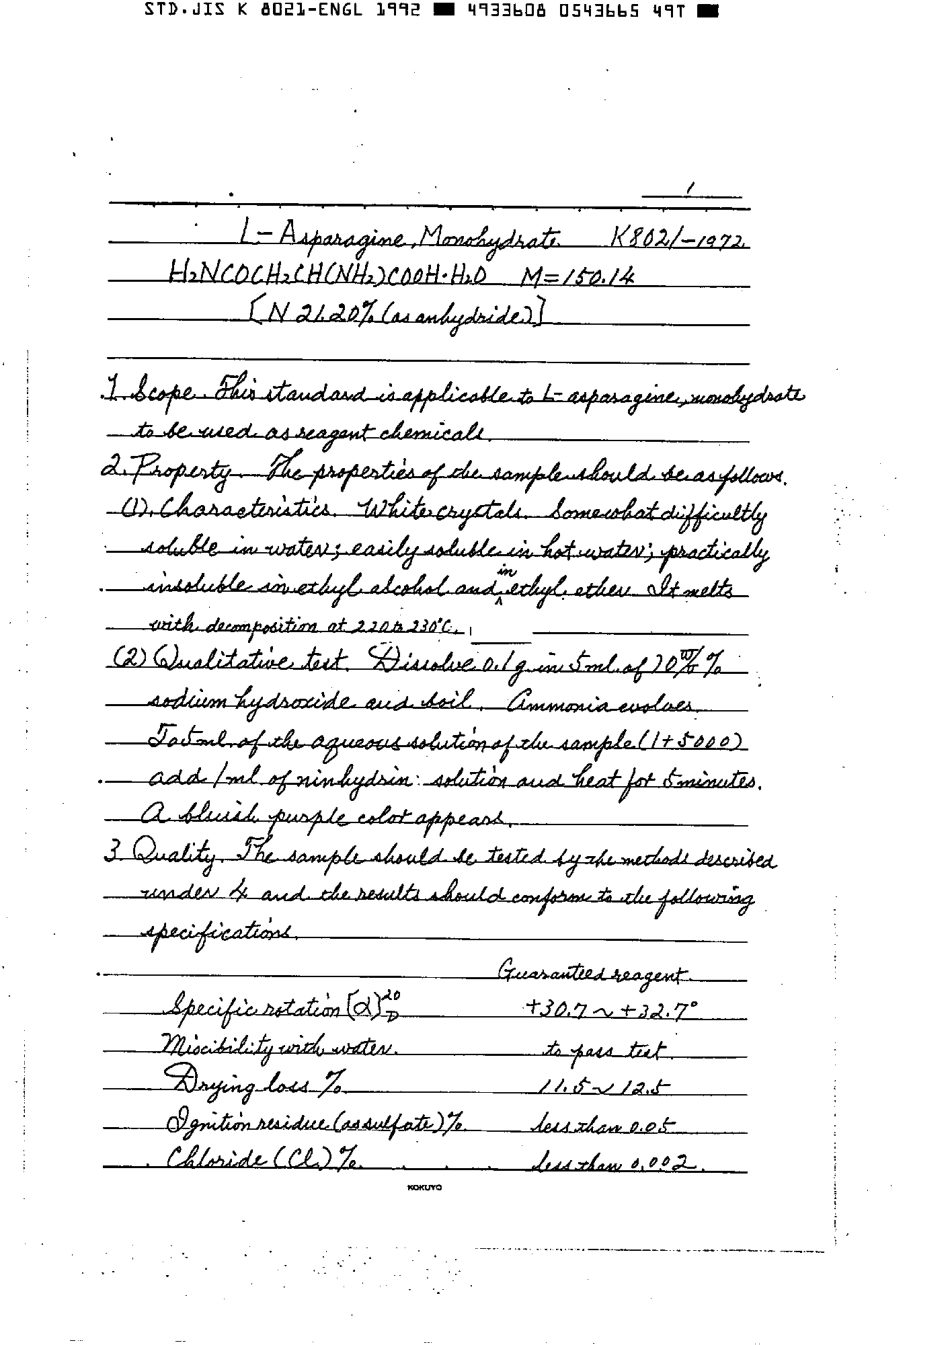 STD.JIS K 8021-ENGL 1992 ■ 4933608 0543665 49T ■
1
L-Asparagine, Monohydrate K8021-1972
H₂NCOCH₂CH(NH₂)COOH·H₂O M=150.14
[N 21.20% (as anhydride)]
1. Scope. This standard is applicable to L-asparagine, monohydrate
to be used as reagent chemicals.
2. Property. The properties of the sample should be as follows.
(1). Characteristics. White crystals. Somewhat difficultly
soluble in water; easily soluble in hot water; practically
insoluble in ethyl alcohol and in ethyl ether. It melts
with decomposition at 220 to 230°C.
(2) Qualitative test. Dissolve 0.1g in 5ml of 10 W/V %
sodium hydroxide and boil. Ammonia evolves.
To 5ml of the aqueous solution of the sample (1+5000)
add 1ml of ninhydrin solution and heat for 5 minutes.
A bluish purple color appears.
3. Quality. The sample should be tested by the methods described
under 4 and the results should conform to the following
specifications.
Guaranteed reagent
Specific rotation [α]²⁰D +30.7~+32.7°
Miscibility with water. to pass test.
Drying loss % 11.5~12.5
Ignition residue (as sulfate) % less than 0.05
Chloride (Cl) %. less than 0.002.
KOKUYO